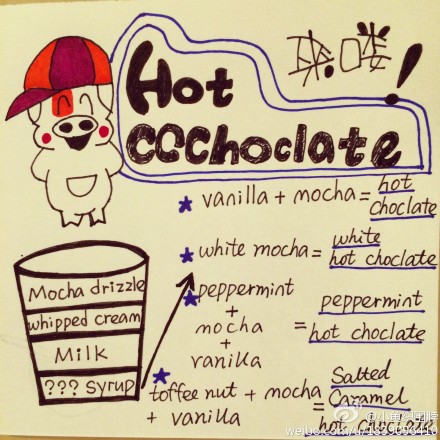 Hot
CQChoclate
!
vanilla + mocha = hot
choclate
white mocha = white
hot choclate
peppermint
+
mocha
+
vanilla
= peppermint
hot choclate
toffee nut + mocha
+ vanilla
= Salted
Caramel
hot choclate
Mocha drizzle
whipped cream
Milk
??? syrup